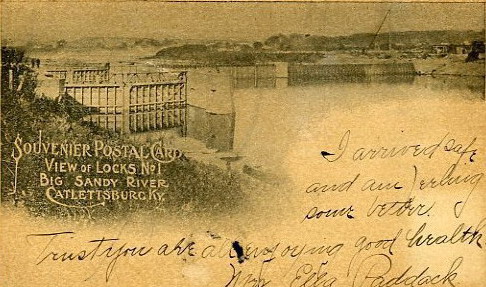 SOUVENIER POSTAL CARD
VIEW OF LOCKS No 1
BIG SANDY RIVER
CATLETTSBURG KY.
I arrived safe
and am feeling
some better.
Trust you are all enjoying good health
Mrs Ella Paddock